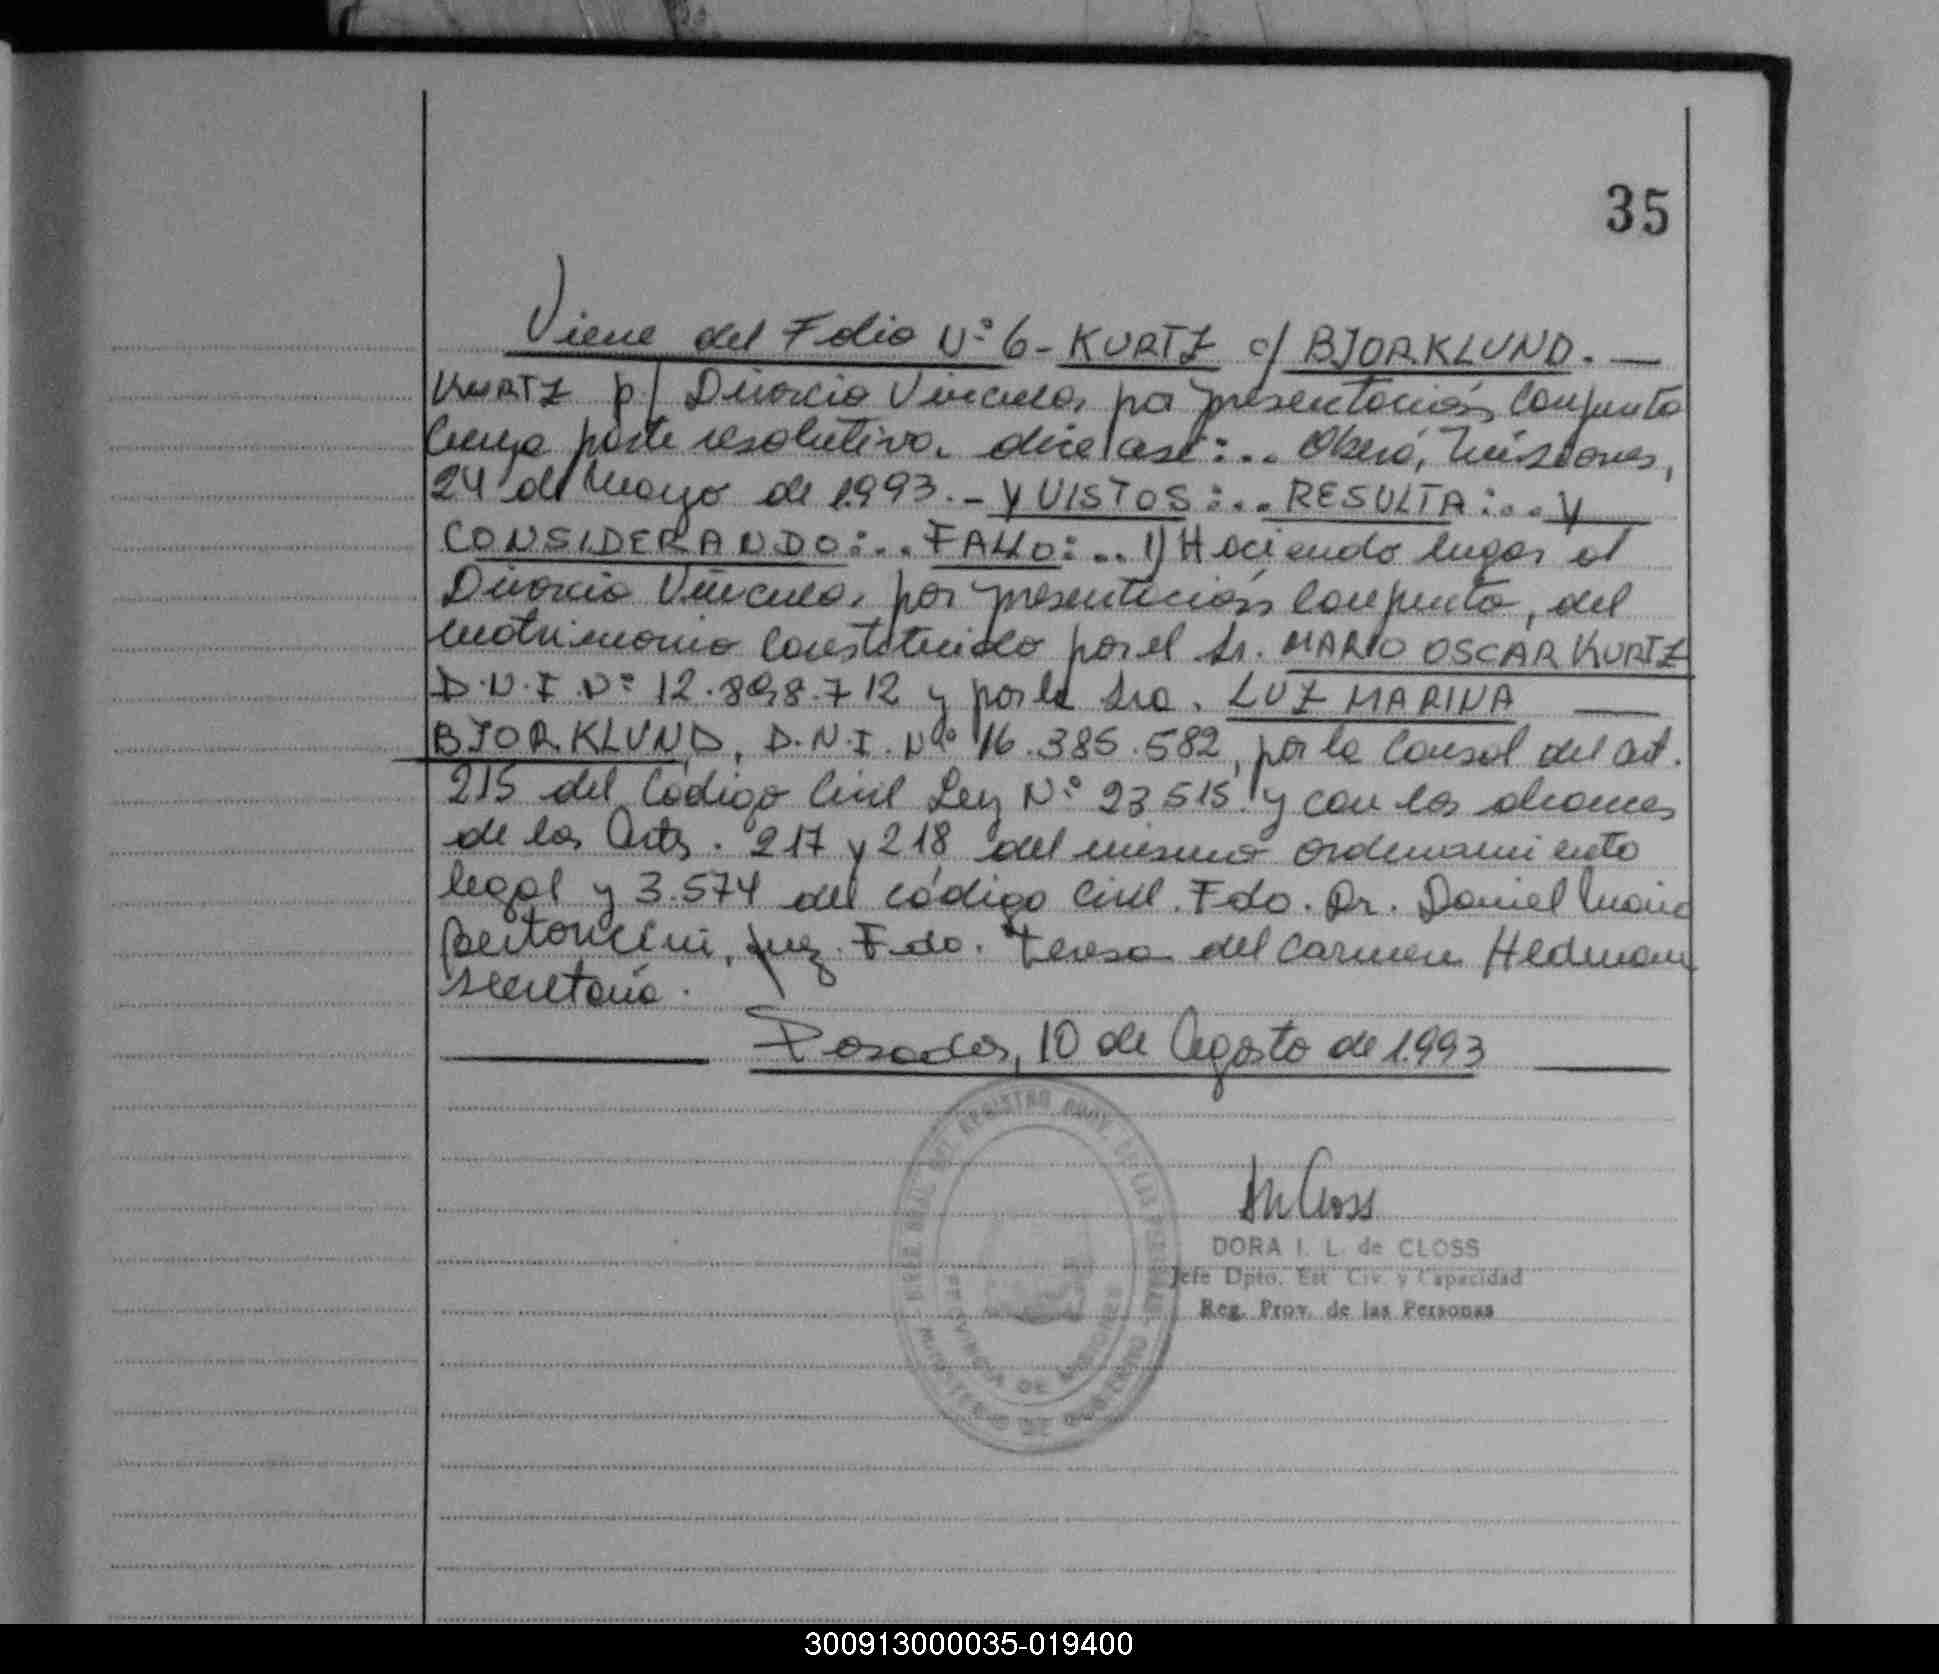 35
Viene del Folio Nº 6 - KURTZ c/ BJORKLUND. —
KURTZ p/ Divorcio Vincular por presentación Conjunta
Cuya parte resolutiva dice así:.. Oberá, Misiones,
24 de Mayo de 1.993.- Y VISTOS:.. RESULTA:... Y
CONSIDERANDO:... FALLO:.. 1) Haciendo lugar al
Divorcio Vincular por presentación Conjunta, del
matrimonio Constituido por el Sr. MARIO OSCAR KURTZ
D.N.I. Nº 12.898.712 y por la Sra. LUZ MARINA
BJORKLUND, D.N.I. Nº 16.385.582, por la Causal del art.
215 del Código Civil Ley Nº 23515 y con los alcances
de los Arts. 217 y 218 del mismo ordenamiento
legal y 3.574 del Código Civil. Fdo. Dr. Daniel Mario
Bertoncini, Juez. Fdo. Teresa del Carmen Hedman
Secretaria.
Posadas, 10 de Agosto de 1.993
DORA I. L. de CLOSS
Jefe Dpto. Est. Civ. y Capacidad
Reg. Prov. de las Personas
DEL REGISTRO PROV. DE LAS PERSONAS
PROVINCIA DE MISIONES
MINISTERIO DE GOBIERNO
300913000035-019400